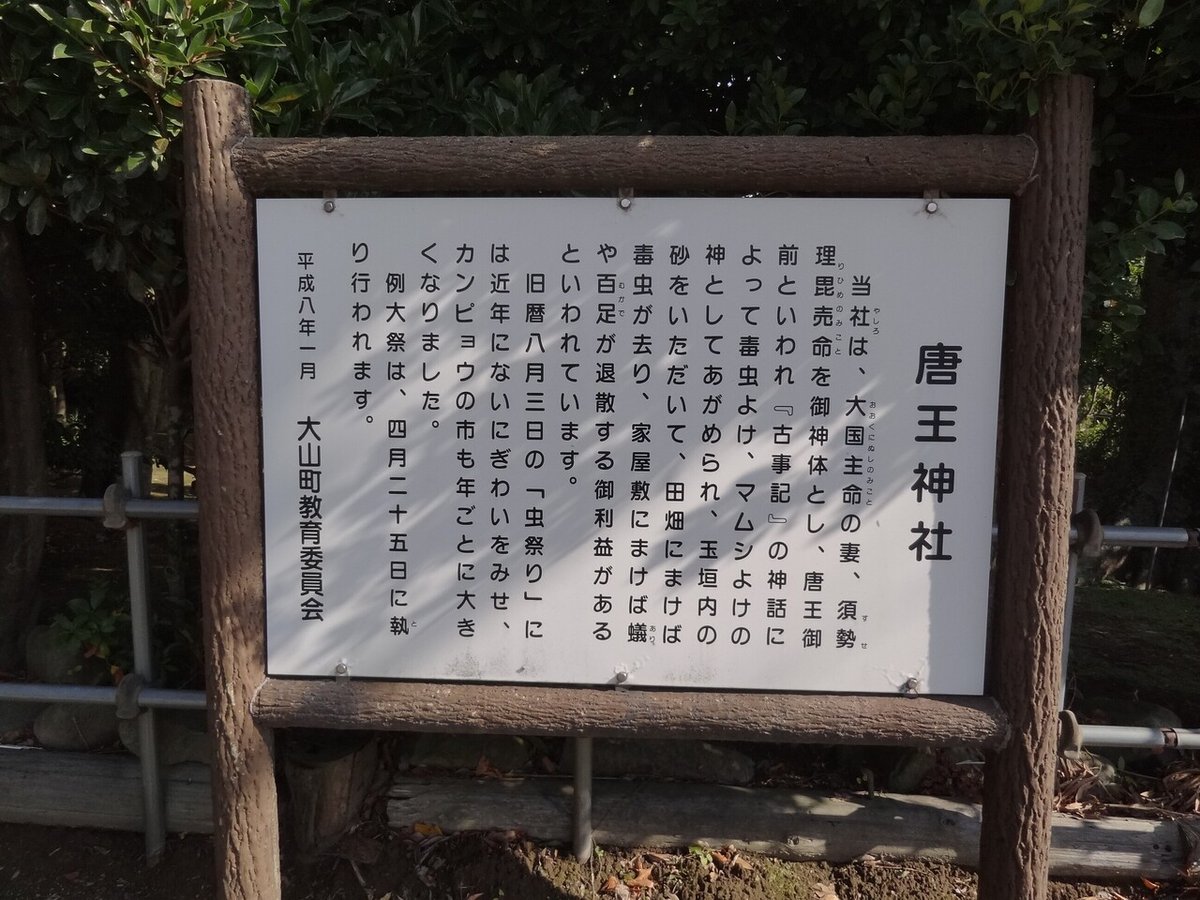 唐王神社
当社は、大国主命の妻、須勢
理毘売命を御神体とし、唐王御
前といわれ『古事記』の神話に
よって毒虫よけ、マムシよけの
神としてあがめられ、玉垣内の
砂をいただいて、田畑にまけば
毒虫が去り、家屋敷にまけば蟻
や百足が退散する御利益がある
といわれています。
旧暦八月三日の「虫祭り」に
は近年にないにぎわいをみせ、
カンピョウの市も年ごとに大き
くなりました。
例大祭は、四月二十五日に執
り行われます。
平成八年一月　大山町教育委員会
やしろ
おおくにぬしのみこと
すせ
りひめのみこと
あり
むかで
と